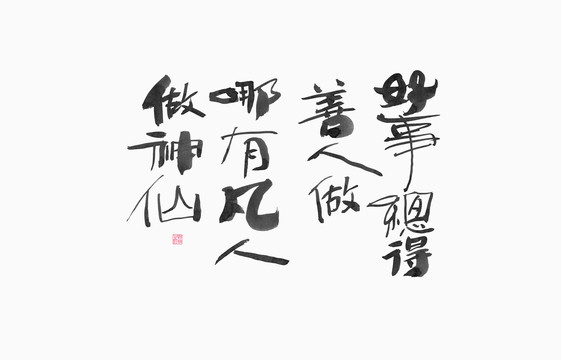 好事總得
善人做
哪有凡人
做神仙